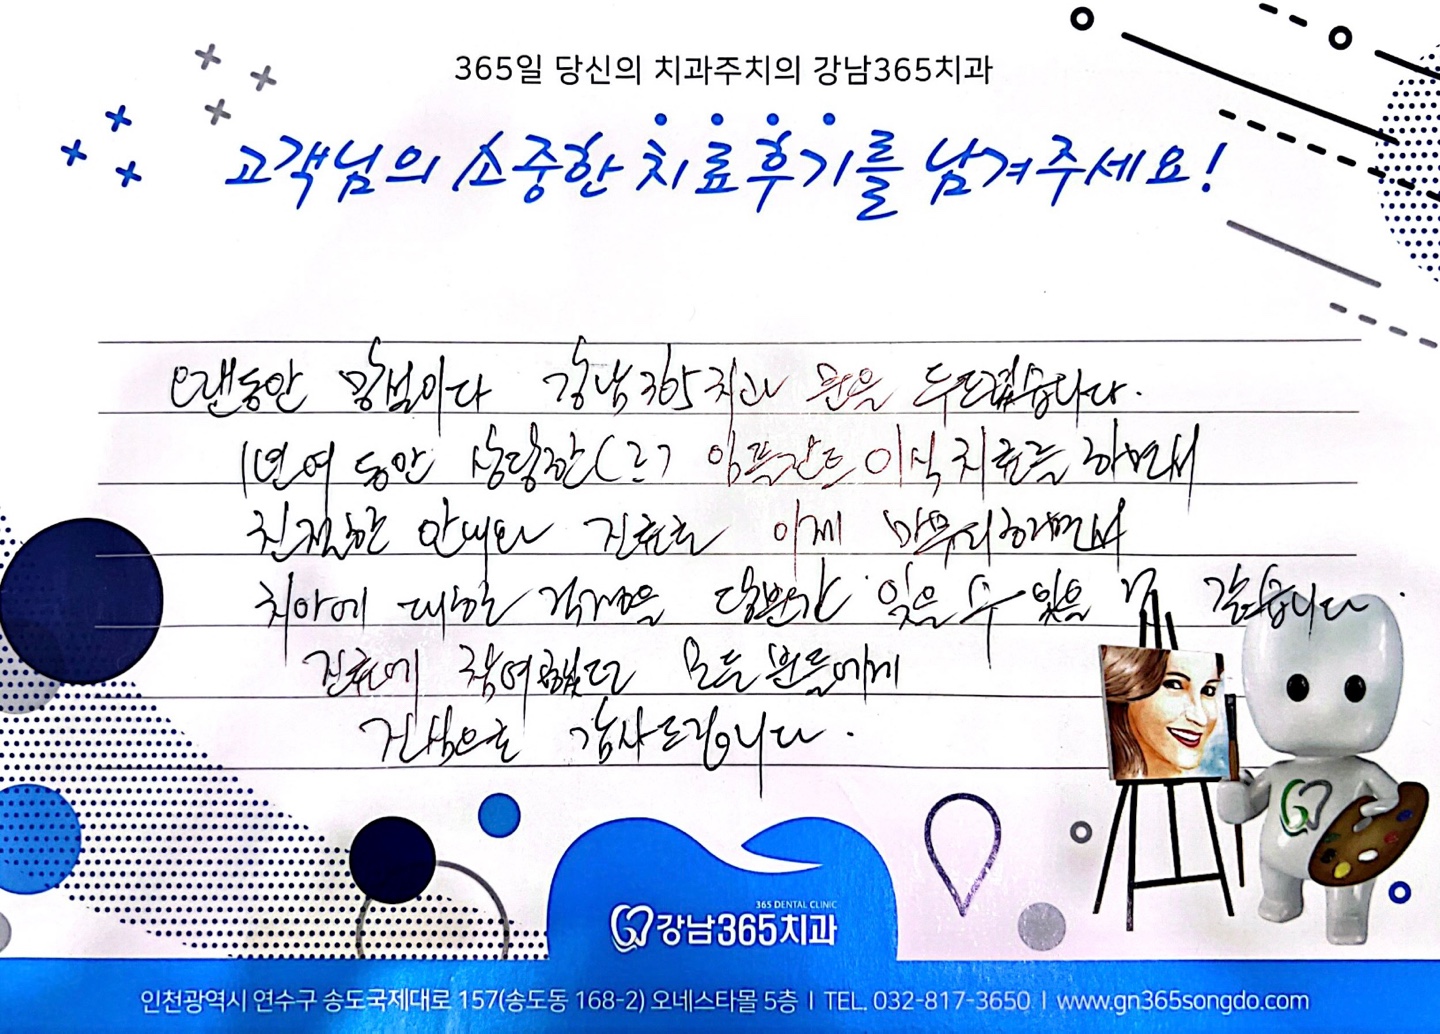 365일 당신의 치과주치의 강남365치과
고객님의 소중한 치료후기를 남겨주세요!
오랜동안 망설이다 강남365치과 문을 두드렸습니다.
1년여 동안 상담한 임플란트 이식 치료를 하면서
친절한 안내와 진료로 이제 마무리하면서
치아에 대한 걱정을 당분간 잊을 수 있을 것 같습니다.
진료에 참여했던 모든 분들에게
진심으로 감사드립니다.
365 DENTAL CLINIC
강남365치과
인천광역시 연수구 송도국제대로 157(송도동 168-2) 오네스타몰 5층 | TEL. 032-817-3650 | www.gn365songdo.com